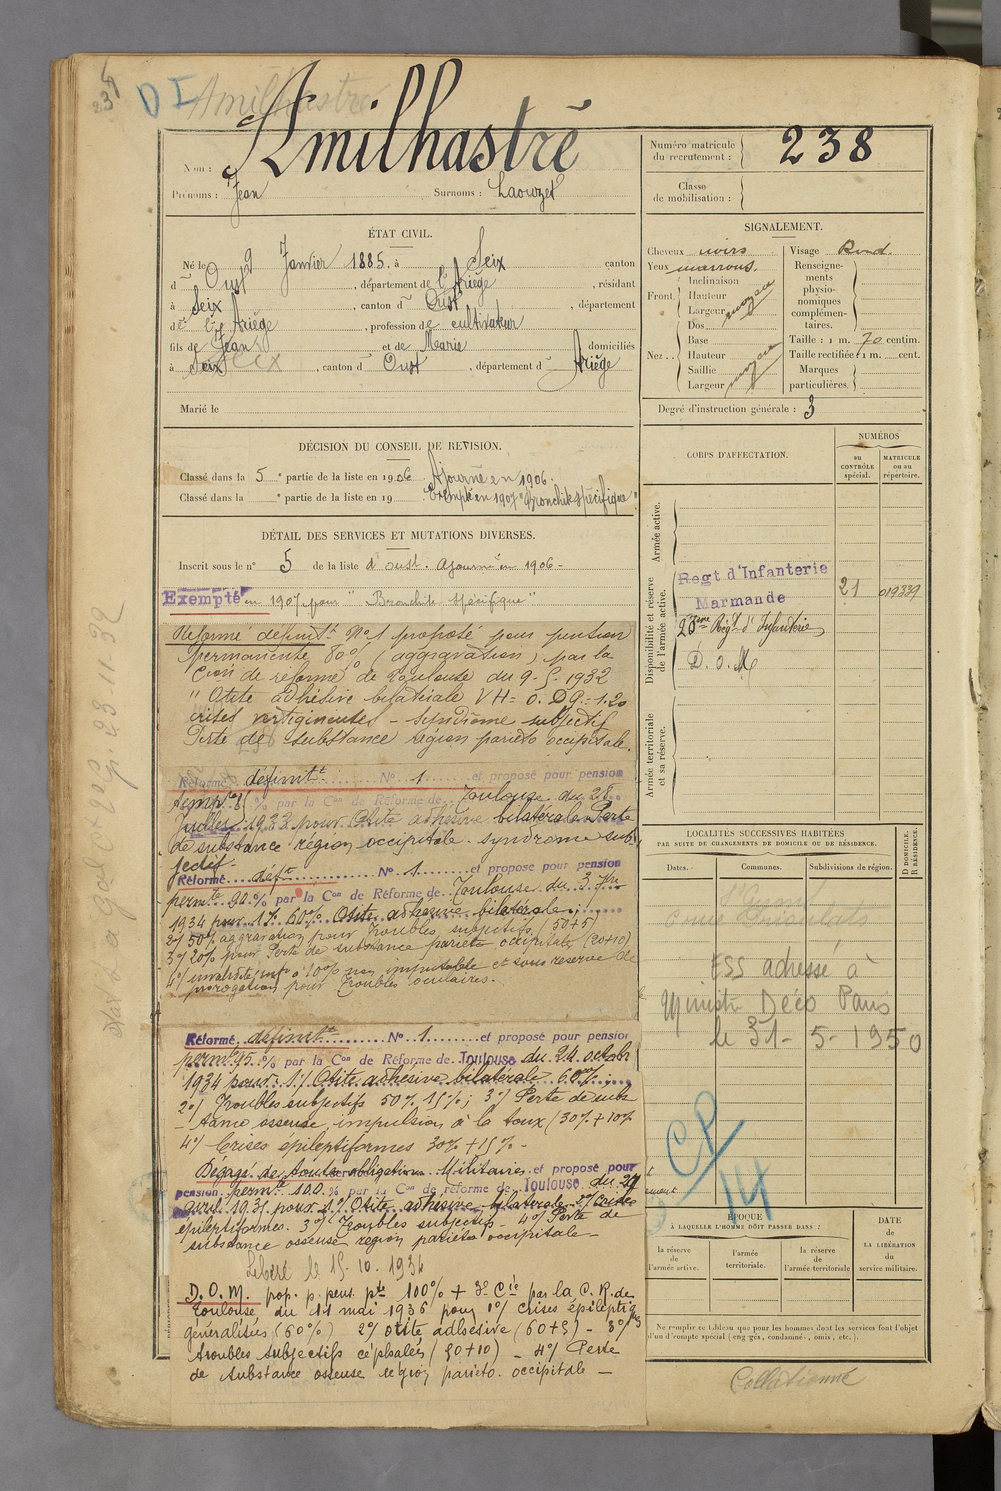 D I Amilhastre
Nom : Amilhastré
Prénoms : Jean Surnoms : Laouzet
ÉTAT CIVIL.
Né le 9 Janvier 1885. à Seix canton
d' Oust, département de l'Ariège, résidant
à Seix, canton d' Oust, département
de l'Ariège, profession de cultivateur
fils de Jean et de Marie domiciliés
à Seix, canton d' Oust, département d' Ariège
Marié le
DÉCISION DU CONSEIL DE REVISION.
Classé dans la 5e partie de la liste en 1906 Ajourné en 1906.
Classé dans la e partie de la liste en 19 Exempté en 1907 "Bronchite spécifique"
DÉTAIL DES SERVICES ET MUTATIONS DIVERSES.
Inscrit sous le n° 5 de la liste d'Oust. Ajourné en 1906 -
Exempté en 1907 pour "Bronchite spécifique"
Réformé définitt N°1 proposé pour pension
permanente 80% (aggravation) par la
Cion de réforme de Toulouse du 9-5-1932
"Otite adhésive bilatérale VH = 0. DG = 1.20
crises vertigineuses - syndrome subjectif
Perte de substance région pariéto occipitale.
Réformé définitt N° 1 et proposé pour pension
% par la Con de Réforme de Toulouse du 28
Juillet 1933 pour Otite adhésive bilatérale Perte
de substance région occipitale. syndrome sub-
jectif.
Réformé déft N° 1 et proposé pour pension
permte 90 % par la Con de Réforme de Toulouse du 3
1934 pour 1°/ 60% Otite adhésive bilatérale;
2°/ 50% aggravation pour Troubles subjectifs (50+5)
3°/ 20% pour Perte de substance pariéto occipitale (20+10)
4°/ invalidité à 10% non imputable et sous réserve de
prorogation pour Troubles oculaires.
Réformé définitt N° 1 et proposé pour pension
permte 95 % par la Con de Réforme de Toulouse du 24 octobre
1934 pour : 1°/ Otite adhésive bilatérale 60% ;
2°/ Troubles subjectifs 50% 15% ; 3°/ Perte de subs-
tance osseuse, impulsion à la toux (30% + 10%
4°/ Crises épileptiformes 30% + 15% -
Dégagé de toutes obligations Militaires et proposé pour
pension permte 100 % par la Con de réforme de Toulouse du 29
avril 1935 pour 1°/ Otite adhésive bilatérale 2°/ Crises
épileptiformes. 3°/ Troubles subjectifs - 4°/ Perte de
substance osseuse région pariéto occipitale -
Libéré le 15-10-1934
D.O.M. prop. p. pens. pte 100% + 3° par la C.R. de
Toulouse du 11 mai 1936 pour 1°/ crises épileptiq
généralisées (60%) 2°/ otite adhésive (60+5) - 3°/
troubles subjectifs céphalées (50+10) - 4°/ Perte
de substance osseuse région pariéto-occipitale -
Numéro matricule
du recrutement : 238
Classe
de mobilisation :
SIGNALEMENT.
Cheveux noirs
Yeux marrons.
Front. Inclinaison
Hauteur
Largeur moyen
Nez... Dos
Base
Hauteur
Saillie
Largeur moyen
Visage Rond.
Renseignements
physionomiques
complémentaires.
Taille : 1 m. 70 centim.
Taille rectifiée : 1 m. cent.
Marques
particulières.
Degré d'instruction générale : 3
CORPS D'AFFECTATION.
NUMÉROS
au CONTRÔLE spécial.
MATRICULE ou au répertoire.
Armée active.
Disponibilité et réserve
de l'armée active.
Regt d'Infanterie
Marmande 21 019339
23me Régt d'Infanterie
D. O. M
Armée territoriale
et sa réserve.
LOCALITÉS SUCCESSIVES HABITÉES
PAR SUITE DE CHANGEMENTS DE DOMICILE OU DE RÉSIDENCE.
D DOMICILE.
R RÉSIDENCE.
Dates. Communes. Subdivisions de région.
ESS adressé à
Ministr Déco Paris
le 31-5-1950
CP/14
ÉPOQUE
À LAQUELLE L'HOMME DOIT PASSER DANS :
la réserve
de l'armée active.
l'armée
territoriale.
la réserve
de l'armée territoriale
DATE
de
LA LIBÉRATION
du
service militaire.
Ne remplir ce tableau que pour les hommes dont les services font l'objet
d'un décompte spécial (engagés, condamnés, omis, etc.).
Collationné